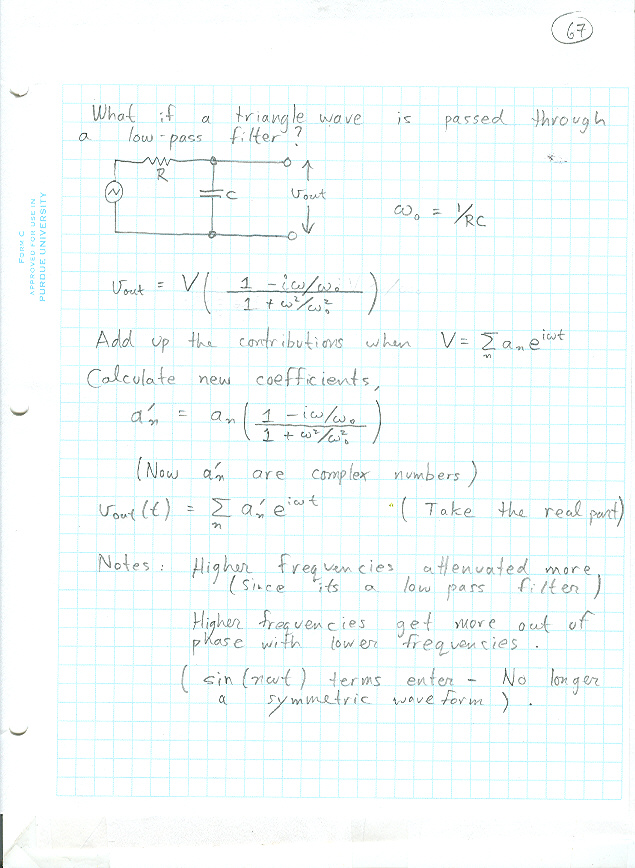 67
What if a triangle wave is passed through
a low-pass filter?
R
C
Vout
ω₀ = 1/RC
FORM C
APPROVED FOR USE IN
PURDUE UNIVERSITY
Vout = V( (1 - iω/ω₀) / (1 + ω²/ω₀²) )
Add up the contributions when V = Σₙ aₙ e^{iωt}
Calculate new coefficients,
a'ₙ = aₙ( (1 - iω/ω₀) / (1 + ω²/ω₀²) )
(Now a'ₙ are complex numbers)
Vout(t) = Σₙ a'ₙ e^{iωt} (Take the real part)
Notes: Higher frequencies attenuated more
(Since its a low pass filter)
Higher frequencies get more out of
phase with lower frequencies.
( sin(nωt) terms enter - No longer
a symmetric waveform ).